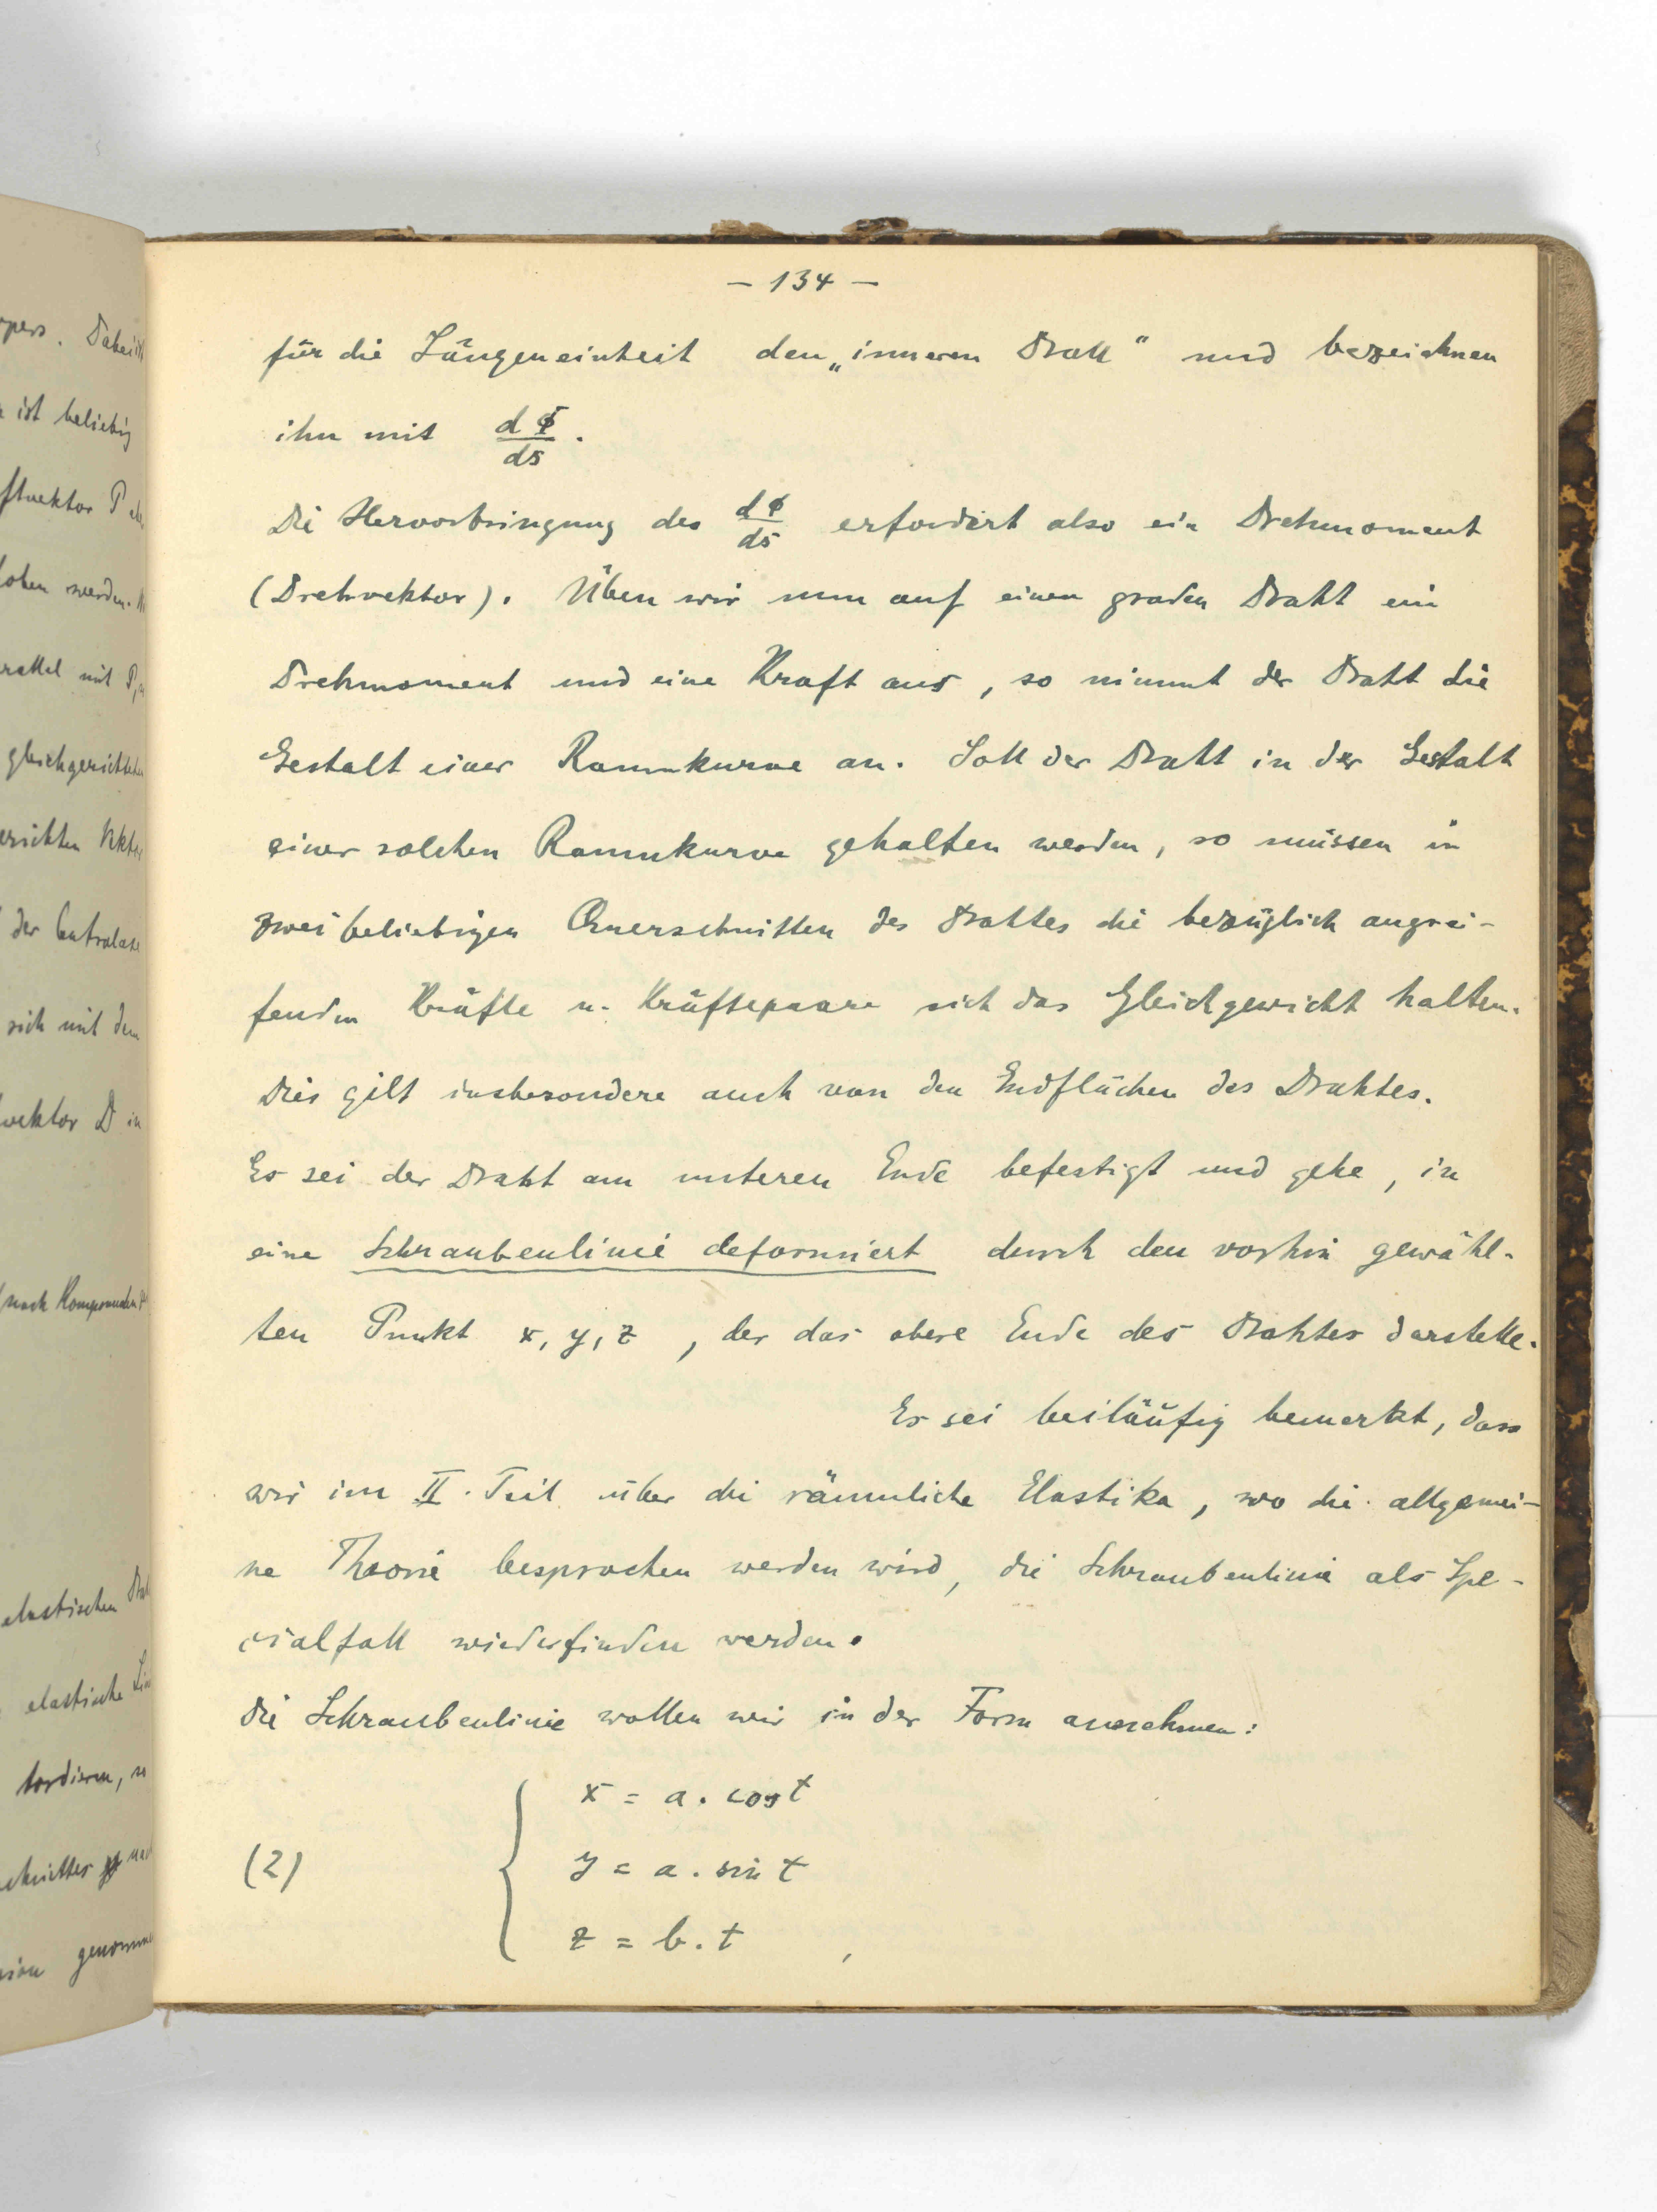 – 134 –
für die Längeneinheit den „inneren Drall“ und bezeichnen
ihn mit dΦ/ds.
Die Hervorbringung des dΦ/ds erfordert also ein Drehmoment
(Drehvektor). Üben wir nun auf einen graden Draht ein
Drehmoment und eine Kraft aus, so nimmt der Draht die
Gestalt einer Raumkurve an. Soll der Draht in der Gestalt
einer solchen Raumkurve gehalten werden, so müssen in
zwei beliebigen Querschnitten des Drahtes die bezüglich angrei-
fenden Kräfte u. Kräftepaare sich das Gleichgewicht halten.
Dies gilt insbesondere auch von den Endflächen des Drahtes.
Es sei der Draht am unteren Ende befestigt und gehe, in
eine Schraubenlinie deformiert durch den vorhin gewähl-
ten Punkt x, y, z , der das obere Ende des Drahtes darstelle.
Es sei beiläufig bemerkt, dass
wir im II. Teil über die räumliche Elastika, wo die allgemei-
ne Theorie besprochen werden wird, die Schraubenlinie als Spe-
cialfall wiederfinden werden.
Die Schraubenlinie wollen wir in der Form annehmen:
x = a . cos t
(2) y = a . sin t
z = b . t ,
ist beliebig
werden.
mit
der
sich mit dem
vektor D in
nach
elastischen
elastische
tordieren,